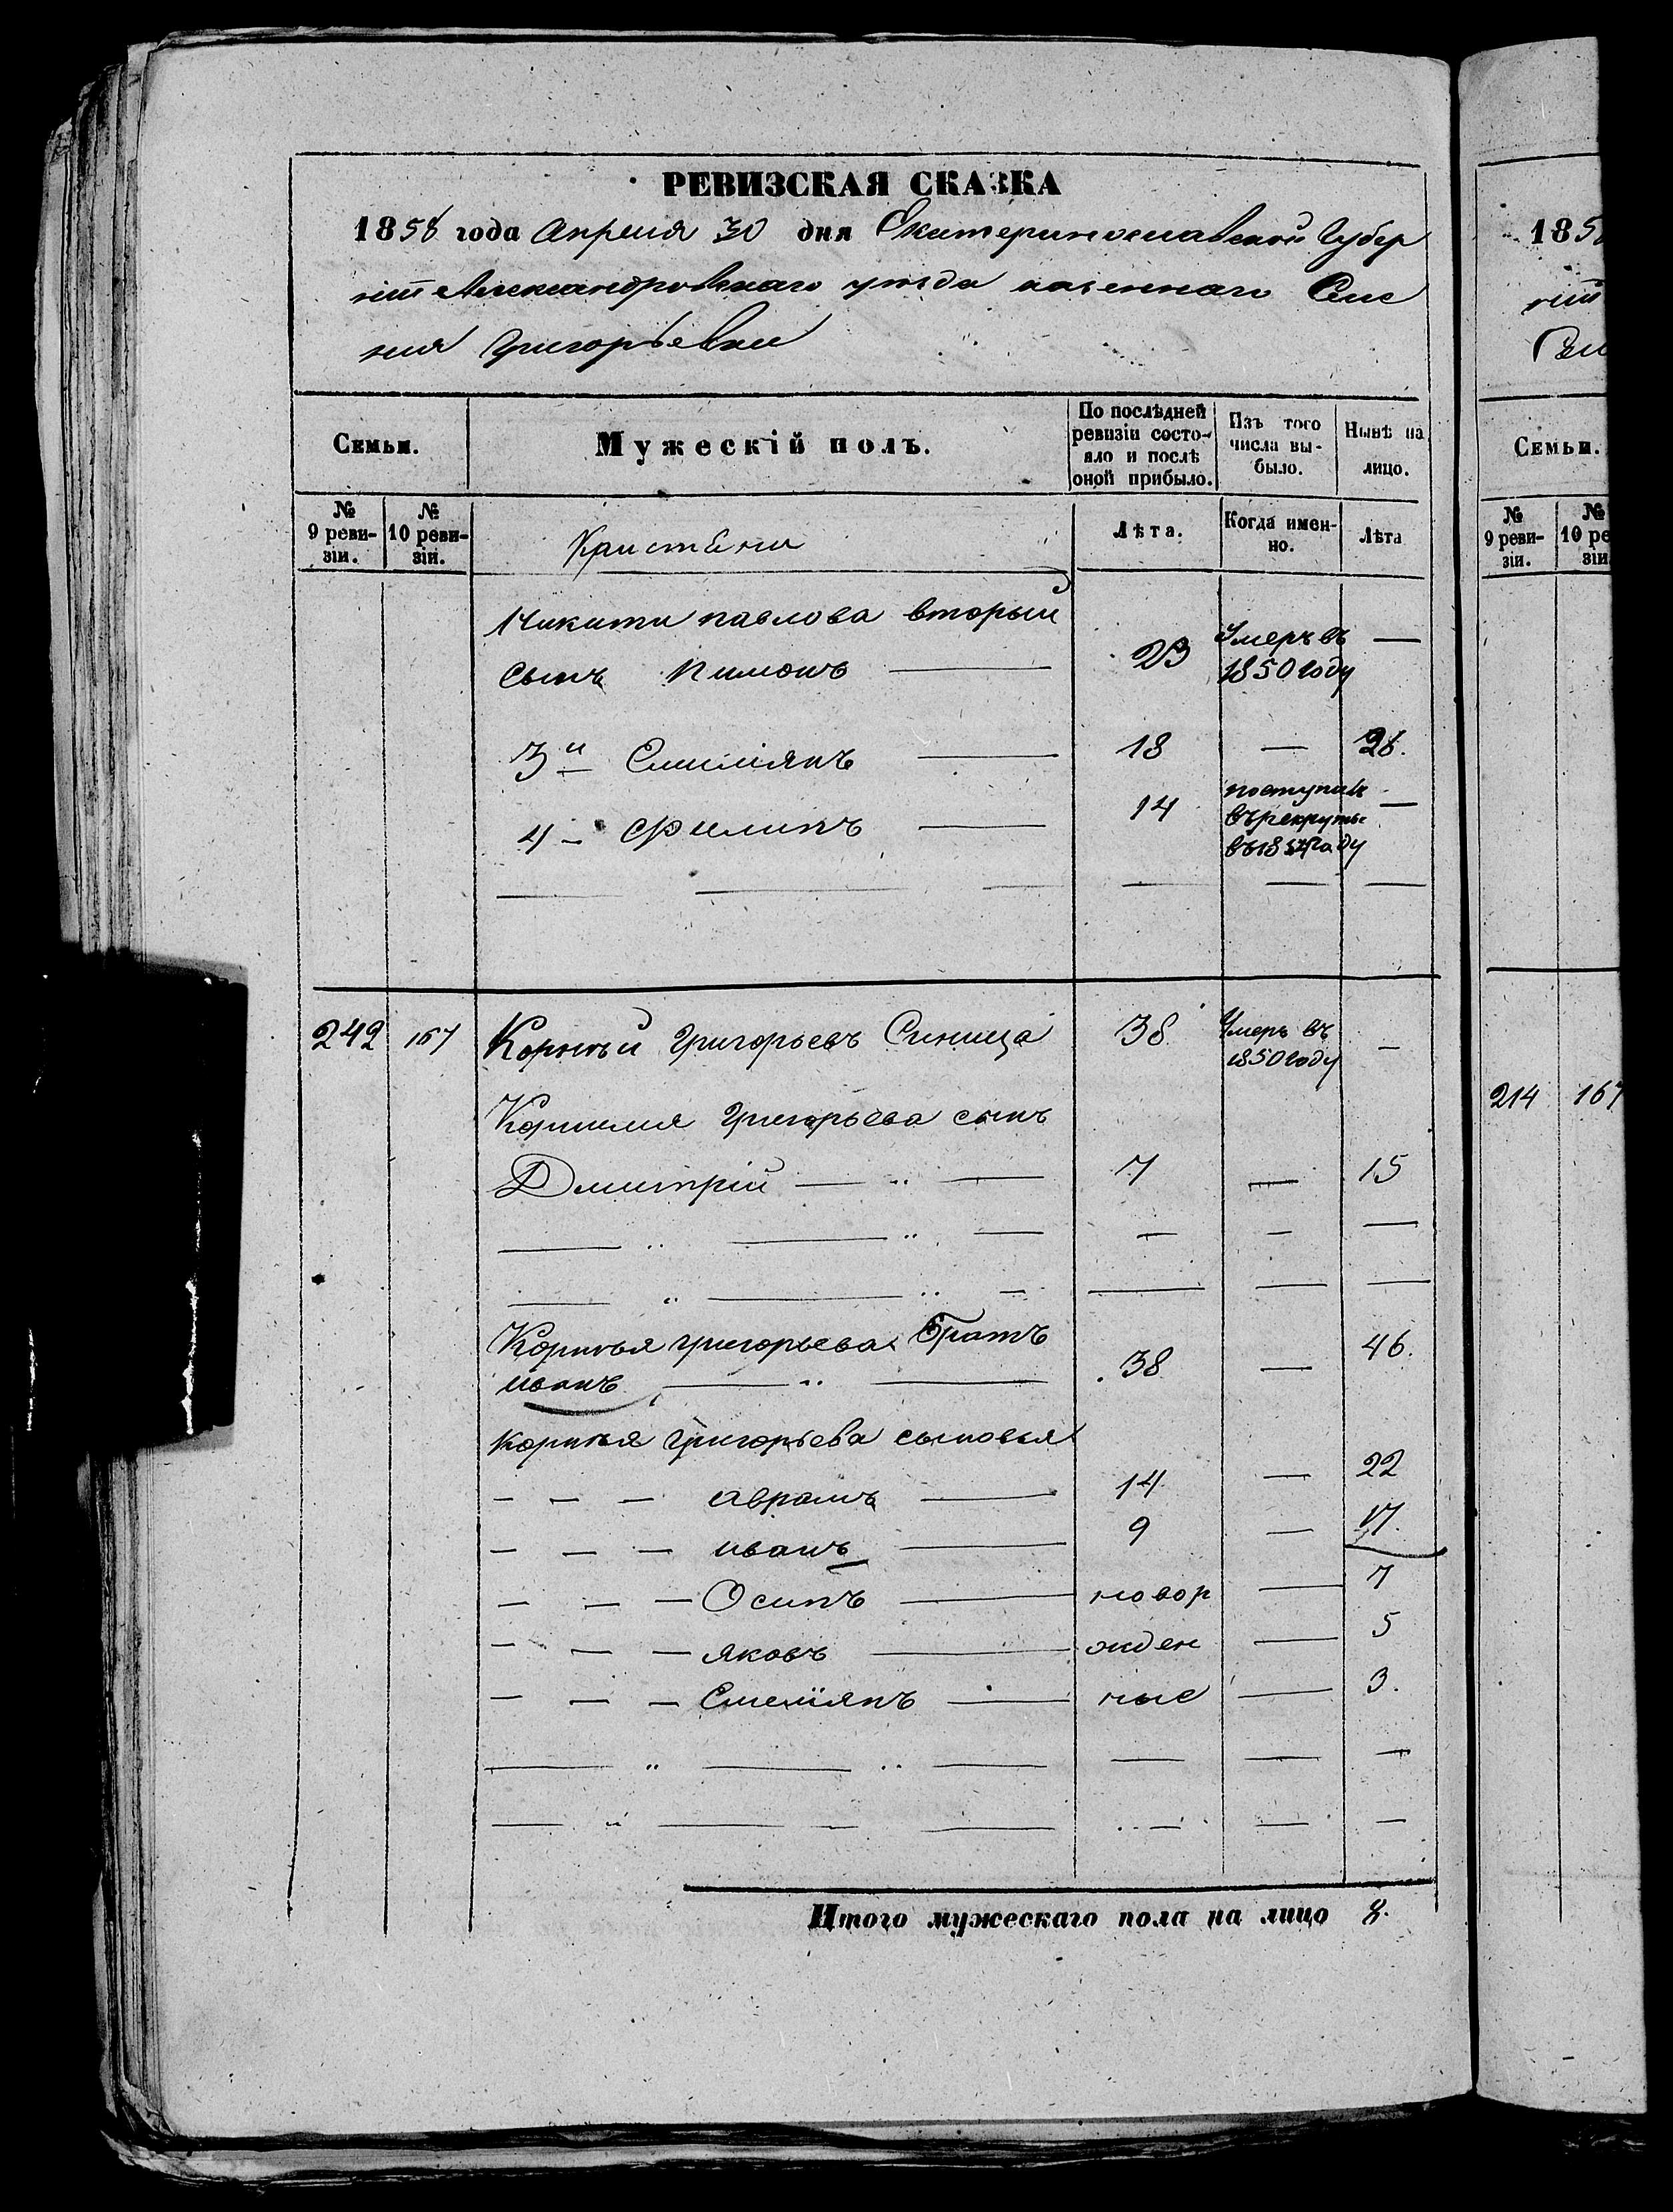 РЕВИЗСКАЯ СКАЗКА
1858 года Апреля 30 дня Екатеринославской Губер
ніи Александровскаго уезда казеннаго Селе
ния Григорьевки
Семьи. Мужескій полъ. По послѣдней ревизіи состояло и послѣ оной прибыло. Изъ того числа выбыло. Нынѣ на лицо.
№ 9 ревизіи. № 10 ревизіи. Лѣта. Когда именно. Лѣта
Никиты павлова вторый
сынъ Пимонъ 23 Умеръ въ 1850 году —
3й Емиліянъ 18 — 26.
4 – Филипъ 14 поступилъ въ рекруты —
242 167 Корней Григорьевъ Синица 38 Умеръ въ 1850 году —
Корнилия Григорьева сынъ
Дмитрій 7 — 15
Корнѣя григорьева Братъ
иванъ 38 — 46.
Корнѣя Григорьева сыновья
– – – аврамъ 14 — 22
– – – иванъ 9 — 17.
– – – Осипъ новор — 7
– – – яковъ жден — 5
– – – Емеліянъ ные — 3.
Итого мужескаго пола на лицо 8.
185
ніи
Семьи.
№ 9 ревизіи. № 10 ре зіи
214 167